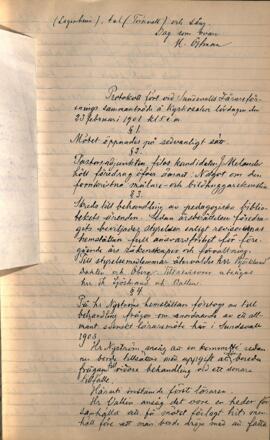 (Lagerheim), tal (Törnvall) och sång.
Dag som ovan
H. Öhman
Protokoll fört vid Sundsvalls Lärareföre-
nings sammanträde å Kyrkosalen lördagen den
23 februari 1901 kl 5 e.m
§ 1.
Mötet öppnades på sedvanligt sätt.
§ 2.
Pastorsadjunkten filos. kandidaten J. Melander
höll föredrag öfver ämnet: Något om den
fornkristna målare- och bildhuggarekonsten
§ 3.
Skreds till behandling av pedagogiska biblio-
tekets ärenden. Sedan årsberättelsen föredra-
gits beviljades styrelsen enligt revisorernas
hemställan full ansvarsfrihet för före-
gående års räkenskaper och förvaltning.
Till styrelsemedlemmar återvaldes hrr Sjöstrand
Dahlén och Öberg. Till revisorer utsågos
hrr Sjöstrand och Vallen.
§ 4.
På hr Nyströms hemställan företogs nu till
behandling frågan om anordnande av ett all-
mänt svenskt läraremöte här i Sundsvall
1903.
Hr Nyström ansåg, att en kommitté redan
nu borde tillsättas med uppgift att bereda
frågan vidare behandling vid ett senare
tillfälle.
Häruti instämde flest lärarna.
Hr Vallen ansåg det vore en heder för
samhället att få mötet förlagt hit, men
höll före att man borde dröja med att fatta